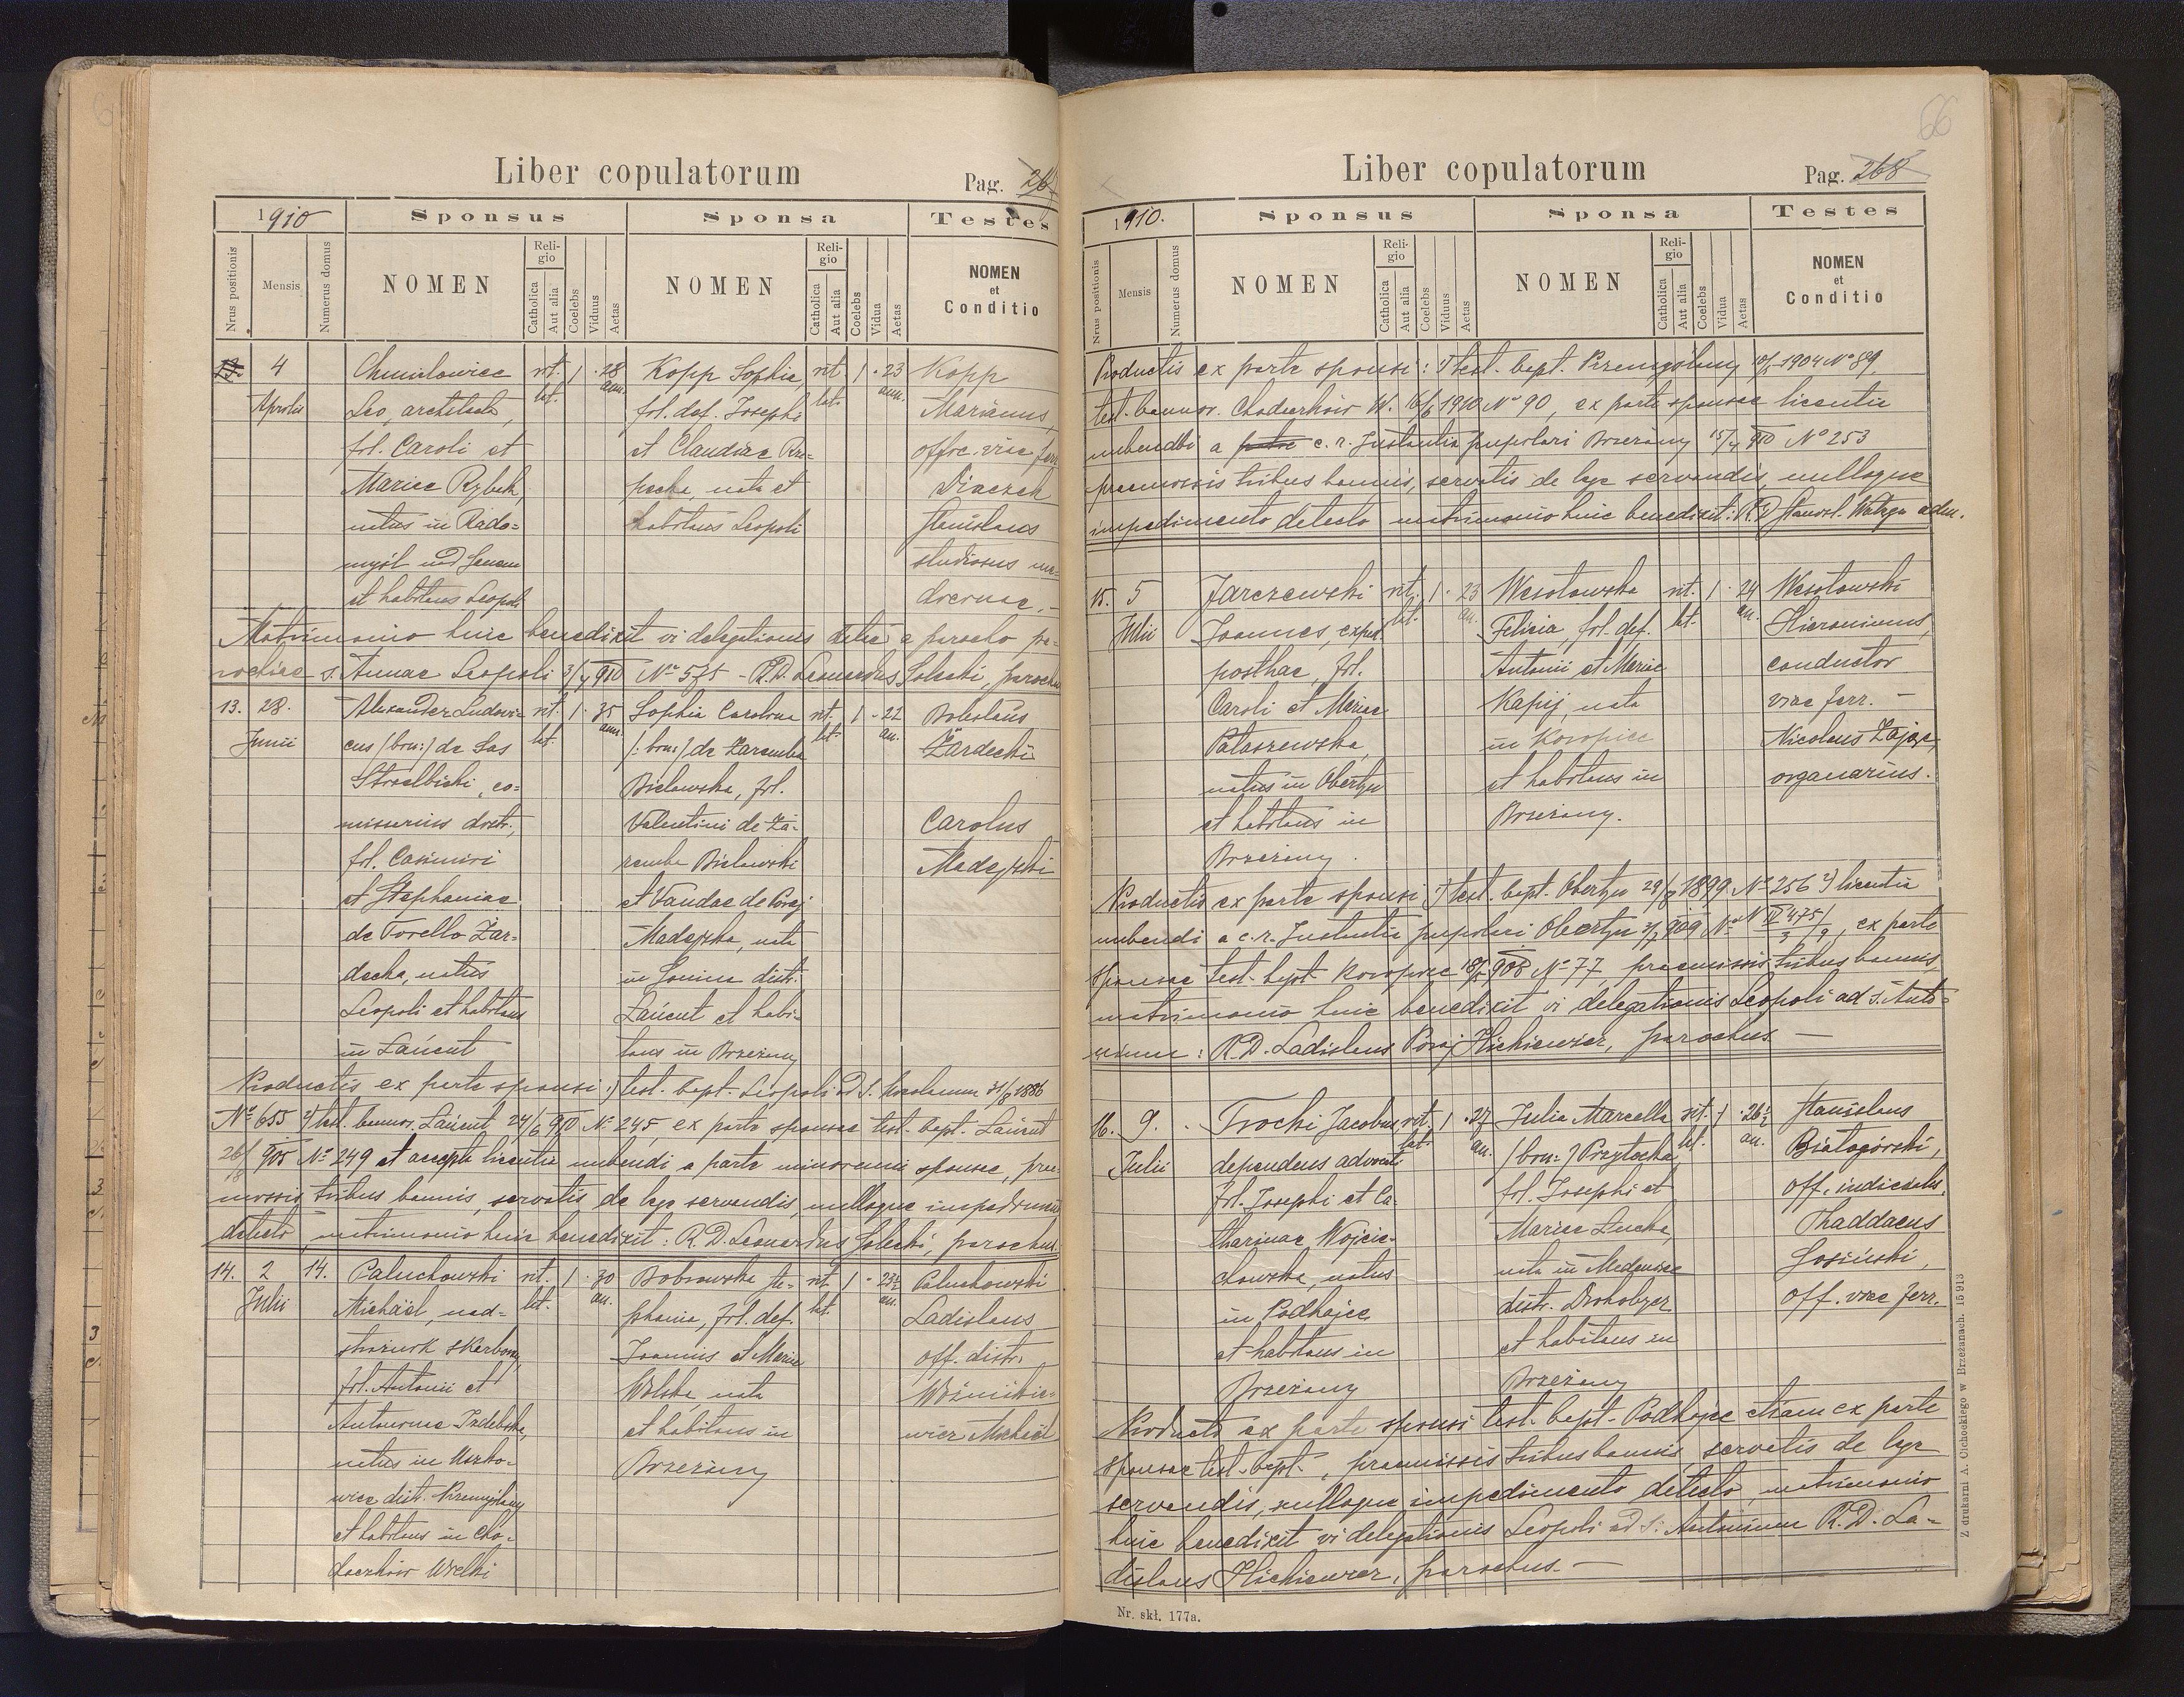 Liber copulatorum
Pag. 267
1910
Sponsus
Sponsa
Testes
Nrus positionis
Mensis
Numerus domus
NOMEN
Religio
Catholica
Aut alia
Coelebs
Viduus
Aetas
NOMEN
Religio
Catholica
Aut alia
Coelebs
Vidua
Aetas
NOMEN
et
Conditio
4
Aprilis
Leo, architecta,
fil. Caroli et
Mariae Rybak,
natus in Rado-
myśl
et habitans Leopoli
rit. lat. 1 28 ann.
Kopp Sophia,
fil. def. Josephi
et Claudiae Rze-
pecka, nata et
habitans Leopoli
rit. lat. 1 23 ann.
Kopp
Marianus,
offic. viae ferr.
Diaczek
Stanislaus
studiosus me-
dicinae.
Matrimonio huic benedixit vi delegationis a parocho pa-
rochiae s. Annae Leopoli 3/4 910 No 575 - R.D. Leonardus Solecki, parochus
13. 28. Junii
Alexander Ludovi-
cus (bin:) de Sas
Strzelbicki, co-
missarius distr.,
fil. Casimiri
et Stephaniae
de Torello Żar-
decka, natus
Leopoli et habitans
in Łańcut
rit. lat. 1 35 ann.
Sophia Carolina
(: bin:) de Zaremba
Bielawska, fil.
Valentini de Za-
remba Bielawski
et Vandae de Poraj
Madejska, nata
in Sonina distr.
Łańcut et habi-
tans in Brzeżany
rit. lat. 1 22 an.
Boleslaus
Żardecki
Carolus
Madejski
Productis ex parte sponsi 1) test. bapt. Leopoli ad S. Nicolaum 31/8 1886
No 655 2) test. bannor. Łańcut 24/6 910 No 245, ex parte sponsae test. bapt. Łańcut
26/8 905 No 249 et accepta licentia nubendi a parte minorennis sponsae, prae-
missis tribus bannis, servatis de lege servandis, nulloque impedimento
detecto, matrimonio huic benedixit: R.D. Leonardus Solecki, parochus.
14. 2 Julii 14.
Paluchowski
Michaël, nad-
strażnik skarbowy,
fil. Antonii et
Antoninae Izdebska,
natus in
distr. Przemyślany
et habitans in Cho-
daczków Wielki
rit. lat. 1 30 an.
Bobrowska Ste-
phania, fil. def.
Joannis et Mariae
Wolska, nata
et habitans in
Brzeżany
rit. lat. 1 23½ an.
Paluchowski
Ladislaus
off. distr.
Woźnikie-
wicz Michaël
Liber copulatorum
Pag. 268
66
1910.
Sponsus
Sponsa
Testes
Nrus positionis
Mensis
Numerus domus
NOMEN
Religio
Catholica
Aut alia
Coelebs
Viduus
Aetas
NOMEN
Religio
Catholica
Aut alia
Coelebs
Vidua
Aetas
NOMEN
et
Conditio
Productis ex parte sponsi: 1) test. bapt. Przemyślany 1904 No 89,
test. bannor. Chodaczków W. 16/6 1910 No 90, ex parte sponsae licentia
nubendi a c. r. Instantia pupilari Brzeżany 15/4 910 No 253
praemissis tribus bannis, servatis de lege servandis, nulloque
impedimento detecto matrimonio huic benedixit: R.D. Stanisl. adm.
15. 5 Julii
Jarczewski
Joannes, exped.
posthac, fil.
Caroli et Mariae
Pataszewska,
natus in Obertyn
et habitans in
Brzeżany.
rit. lat. 1 23 an.
Wesołowska
Felicia, fil. def.
Antonii et Mariae
Kapij, nata
in Koropiec
et habitans in
Brzeżany.
rit. lat. 1 24 an.
Wesołowski
Hieronimus,
conductor
viae ferr. -
Nicolaus Zając,
organarius.
Productis ex parte sponsi 1) test. bapt. Obertyn 29/8 1899 No 256 2) licentia
nubendi a c. r. Instantia pupilari Obertyn 909 No N IV 475/9, ex parte
sponsae test. bapt. Koropiec 18/ 908 No 77 praemissis tribus bannis,
matrimonio huic benedixit vi delegationis Leopoli ad s. Anto-
nium: R.D. Ladislaus Poraj Hickiewicz, parochus -
16. 9. Julii
Trocki Jacobus
dependens advocati
fil. Josephi et Ca-
tharinae Wojcie-
chowska, natus
in Podhajce
et habitans in
Brzeżany
rit. lat. 1 27 an.
Julia Marcella
(bin:) Przytocka,
fil. Josephi et
Mariae Lucka,
nata in Medenice
distr. Drohobycz
et habitans in
Brzeżany
rit. lat. 1 26½ an.
Stanislaus
Białogórski,
off. iudicialis.
Thaddaeus
Gosiński,
off. viae ferr.
Producto ex parte sponsi test. bapt. Podhajce etiam ex parte
sponsae test. bapt., praemissis tribus bannis, servatis de lege
servandis, nulloque impedimento detecto, matrimonio
huic benedixit vi delegationis Leopoli ad S. Antonium R.D. La-
dislaus Hickiewicz, parochus. -
Nr. skł. 177a.
Z drukarni A. Cichockiego w Brzeżanach. 15913